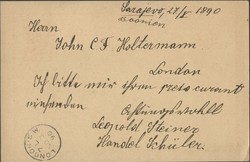 Sarajevo, 27/I 1890
Bosnien
Herrn
John C F Holtermann
London
Ich bitte mir ihren preis curant
einsenden
Achtungsvoll
Leopold Steiner
Handel Schüler
LONDON